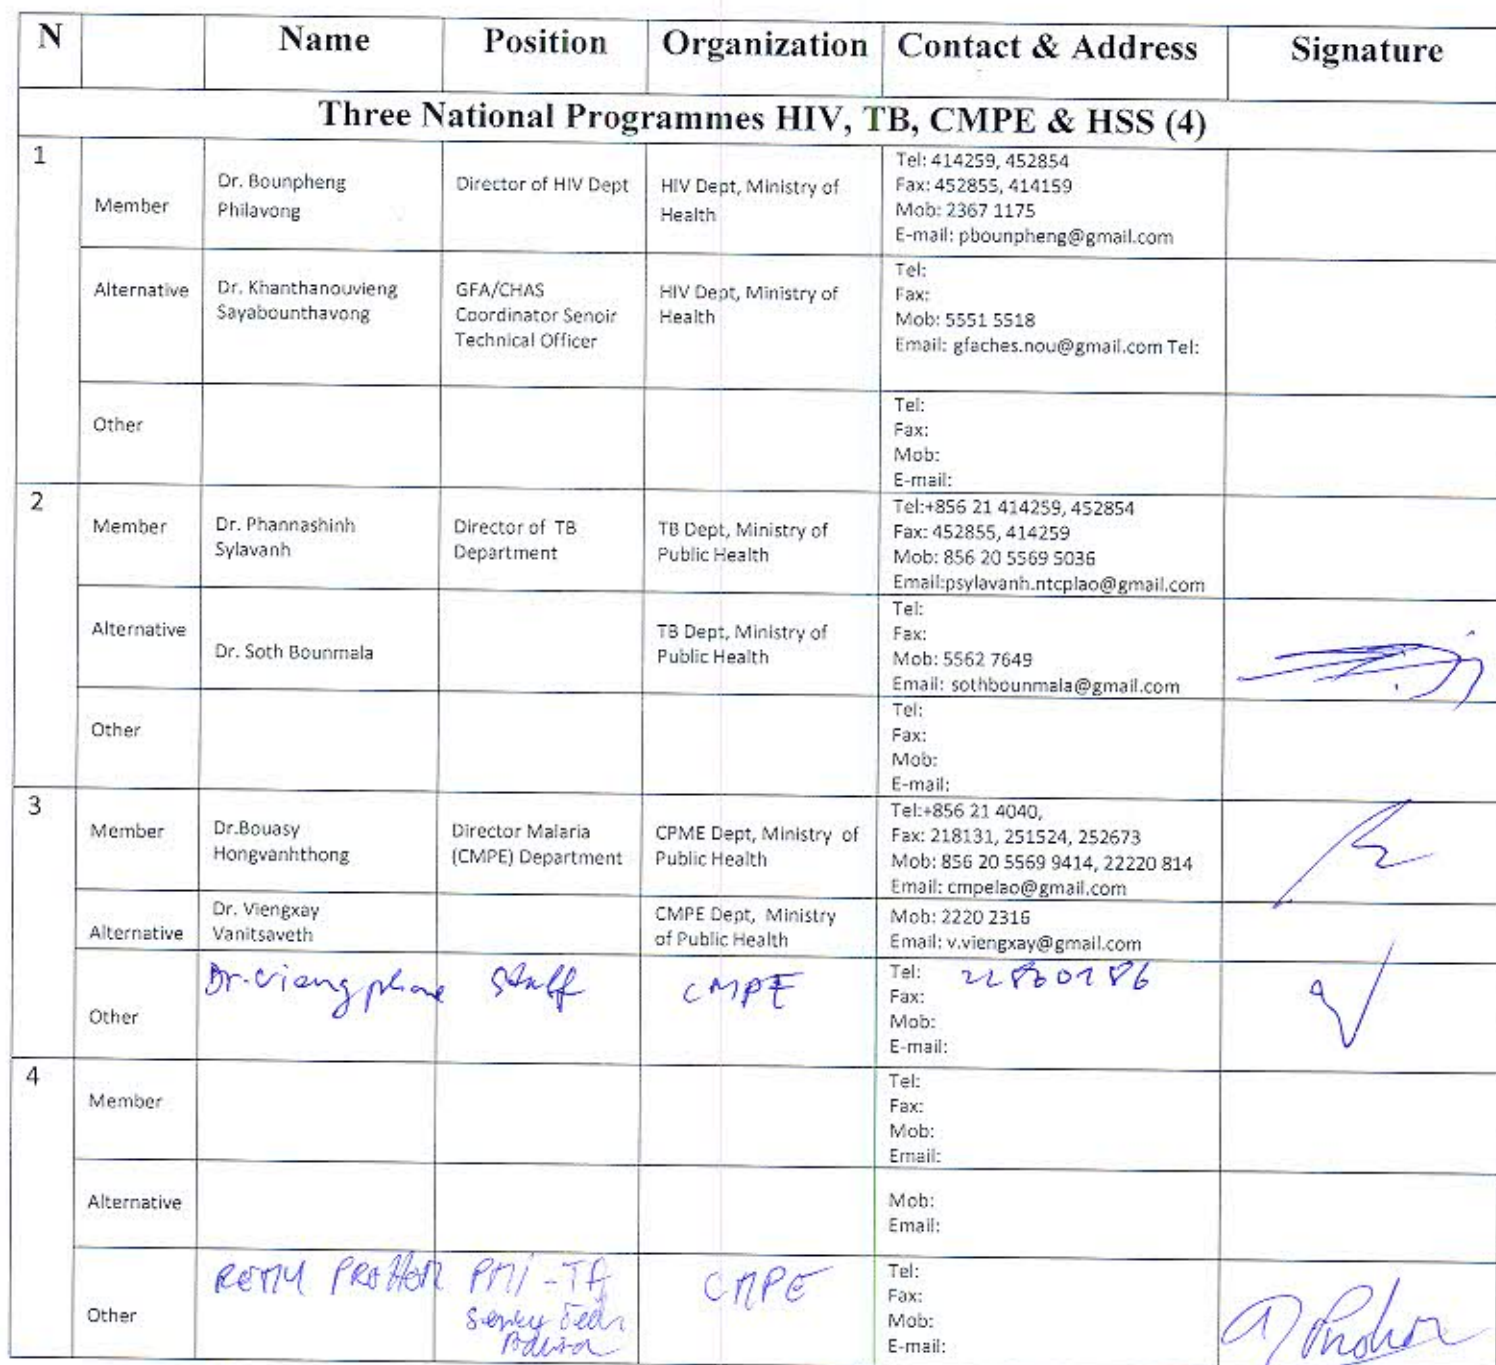 N Name Position Organization Contact & Address Signature
Three National Programmes HIV, TB, CMPE & HSS (4)
1
Member
Dr. Bounpheng
Philavong
Director of HIV Dept
HIV Dept, Ministry of
Health
Tel: 414259, 452854
Fax: 452855, 414159
Mob: 2367 1175
E-mail: pbounpheng@gmail.com
Alternative
Dr. Khanthanouvieng
Sayabounthavong
GFA/CHAS
Coordinator Senoir
Technical Officer
HIV Dept, Ministry of
Health
Tel:
Fax:
Mob: 5551 5518
Email: gfaches.nou@gmail.com Tel:
Other
Tel:
Fax:
Mob:
E-mail:
2
Member
Dr. Phannashinh
Sylavanh
Director of TB
Department
TB Dept, Ministry of
Public Health
Tel:+856 21 414259, 452854
Fax: 452855, 414259
Mob: 856 20 5569 5036
Email:psylavanh.ntcplao@gmail.com
Alternative
Dr. Soth Bounmala
TB Dept, Ministry of
Public Health
Tel:
Fax:
Mob: 5562 7649
Email: sothbounmala@gmail.com
Other
Tel:
Fax:
Mob:
E-mail:
3
Member
Dr.Bouasy
Hongvanhthong
Director Malaria
(CMPE) Department
CPME Dept, Ministry of
Public Health
Tel:+856 21 4040,
Fax: 218131, 251524, 252673
Mob: 856 20 5569 9414, 22220 814
Email: cmpelao@gmail.com
Alternative
Dr. Viengxay
Vanitsaveth
CMPE Dept, Ministry
of Public Health
Mob: 2220 2316
Email: v.viengxay@gmail.com
Other
Dr. Viengphone
Staff
CMPE
Tel:
Fax:
Mob:
E-mail:
4
Member
Tel:
Fax:
Mob:
Email:
Alternative
Mob:
Email:
Other
PMI-TA
CMPE
Tel:
Fax:
Mob:
E-mail: